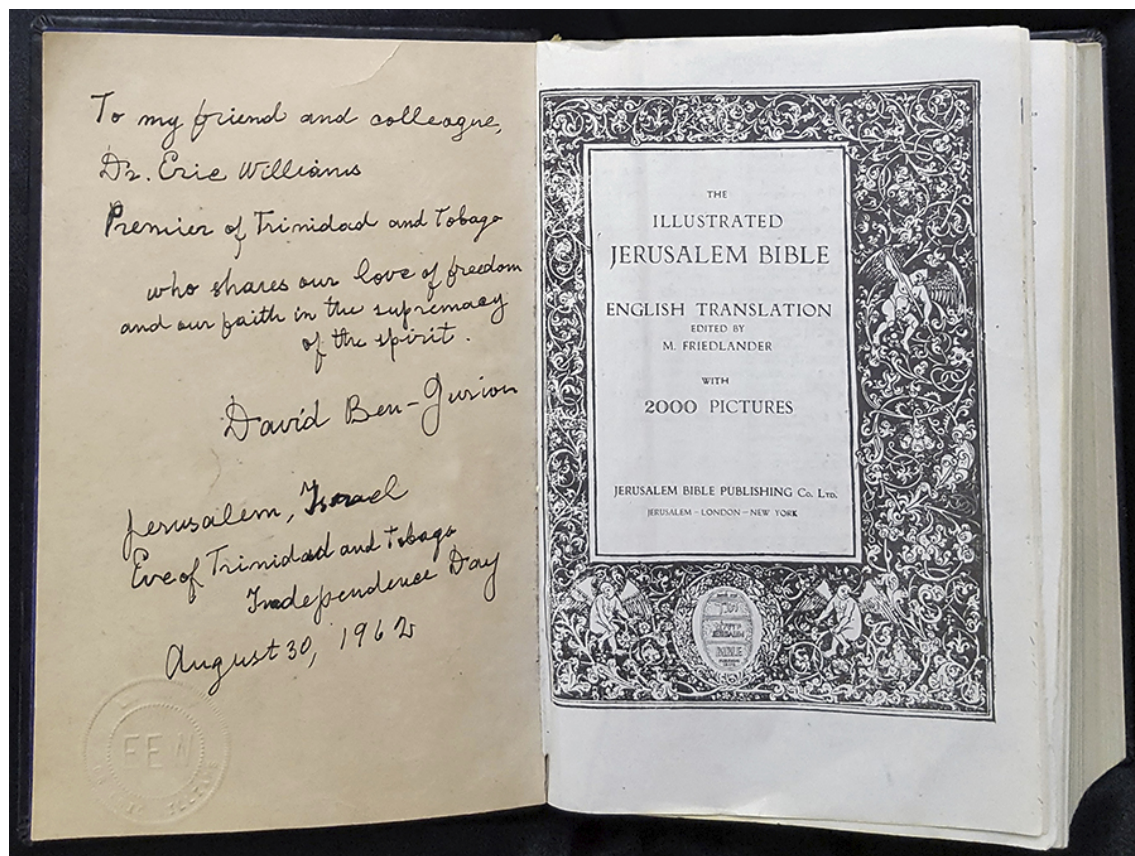 To my friend and colleague,
Dr. Eric Williams
Premier of Trinidad and Tobago
who shares our love of freedom
and our faith in the supremacy
of the spirit.
David Ben-Gurion
Jerusalem, Israel
Eve of Trinidad and Tobago
Independence Day
August 30, 1962
EEW
THE
ILLUSTRATED
JERUSALEM BIBLE
ENGLISH TRANSLATION
EDITED BY
M. FRIEDLANDER
WITH
2000 PICTURES
JERUSALEM BIBLE PUBLISHING Co. LTD.
JERUSALEM – LONDON – NEW YORK
BIBLE